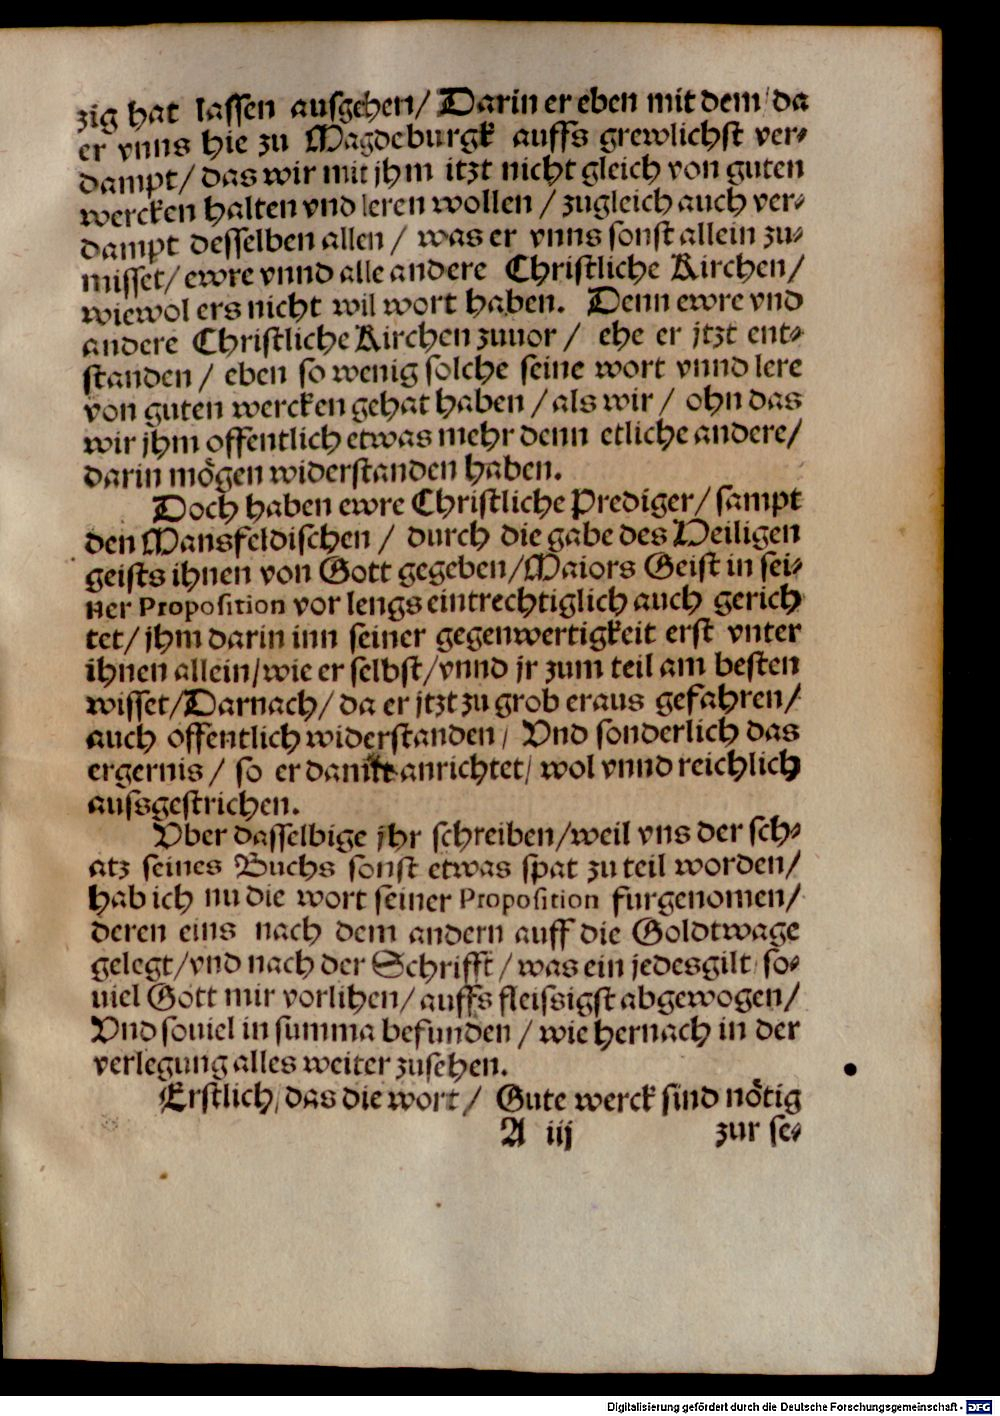 zig hat lassen ausgehen/ Darin er eben mit dem/ da
er vnns hie zu Magdeburgk auffs grewlichst ver-
dampt/ das wir mit jhm itzt nicht gleich von guten
wercken halten vnd leren wollen / zugleich auch ver-
dampt desselben allen / was er vnns sonst allein zu-
misset/ ewre vnnd alle andere Christliche Kirchen/
wiewol ers nicht wil wort haben. Denn ewre vnd
andere Christliche Kirchen zuuor / ehe er jtzt ent-
standen / eben so wenig solche seine wort vnnd lere
von guten wercken gehat haben / als wir / ohn das
wir jhm offentlich etwas mehr denn etliche andere/
darin mögen widerstanden haben.
Doch haben ewre Christliche Prediger/ sampt
den Mansfeldischen / durch die gabe des Heiligen
geists ihnen von Gott gegeben/ Maiors Geist in sei-
ner Proposition vor lengs eintrechtiglich auch gerich
tet/ jhm darin inn seiner gegenwertigkeit erst vnter
ihnen allein/ wie er selbst/ vnnd jr zum teil am besten
wisset/ Darnach/ da er jtzt zu grob eraus gefahren/
auch offentlich widerstanden/ Vnd sonderlich das
ergernis / so er damit anrichtet/ wol vnnd reichlich
aussgestrichen.
Vber dasselbige jhr schreiben/ weil vns der sch-
atz seines Buchs sonst etwas spat zu teil worden/
hab ich nu die wort seiner Proposition furgenomen/
deren eins nach dem andern auff die Goldtwage
gelegt/ vnd nach der Schrifft / was ein jedes gilt/ so-
uiel Gott mir vorlihen/ auffs fleissigst abgewogen/
Vnd souiel in summa befunden / wie hernach in der
verlegung alles weiter zusehen.
Erstlich/ das die wort / Gute werck sind nötig
A iij zur se-
Digitalisierung gefördert durch die Deutsche Forschungsgemeinschaft - DFG